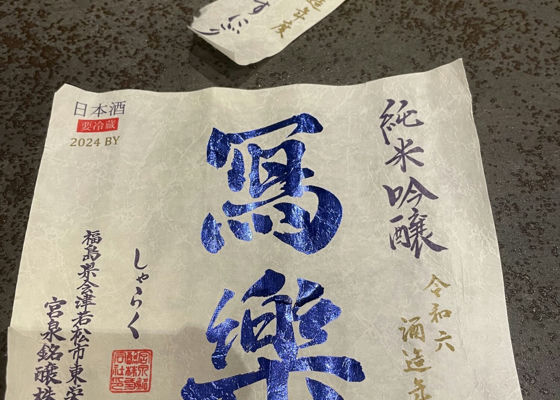 日本酒
要冷蔵
2024 BY
純米吟醸
寫樂
しゃらく
令和六
酒造年
福島県会津若松市東栄
宮泉銘醸株
造年度
にごり